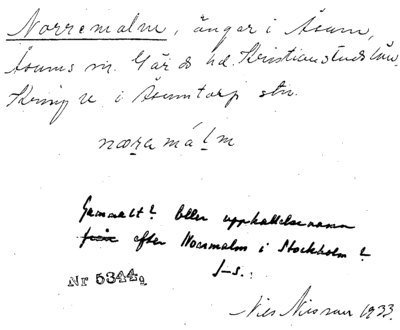 Norremalm, ängar i Åsum,
Åsums sn. Gärds hd. Kristianstads län.
i Åsumtorp stn.
næramálm
Gammalt? Eller uppkallelsenamn
efter Norrmalm i Stockholm?
J-s.
Nr 5344a
Nils Nilsson 1933.